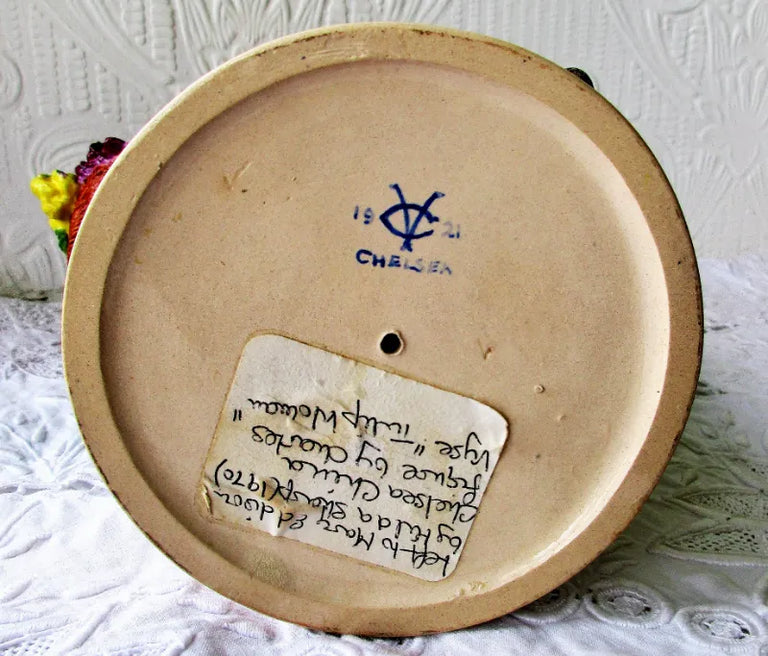 19 CV 21
CHELSEA
Left to Mary Eddison
by Hilda Sharp (1970)
Chelsea China
figure by Charles
Vyse "Tulip Woman"